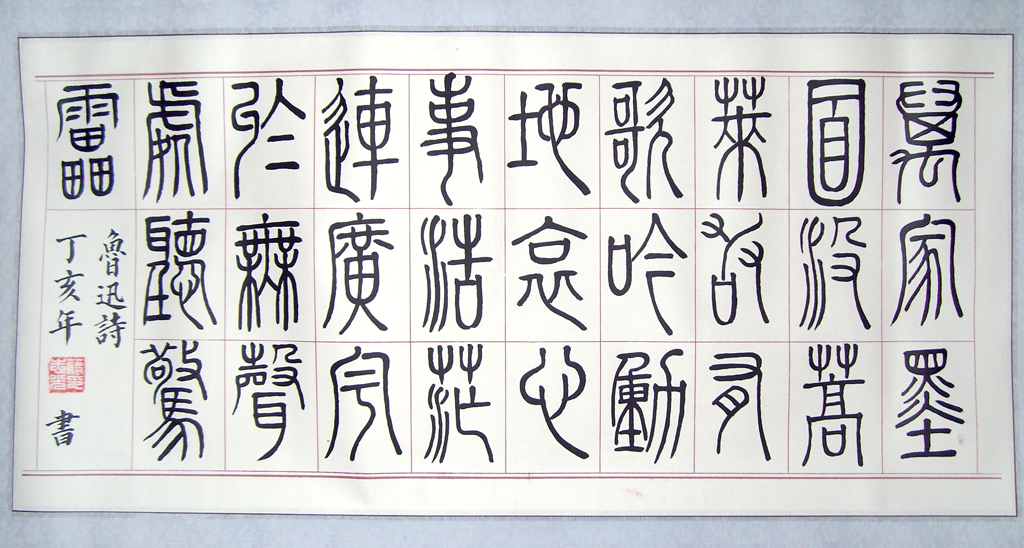 萬家墨
面沒蒿
萊敢有
歌吟動
地哀心
事浩茫
連廣宇
於無聲
處聽驚
雷
魯迅詩
丁亥年
書